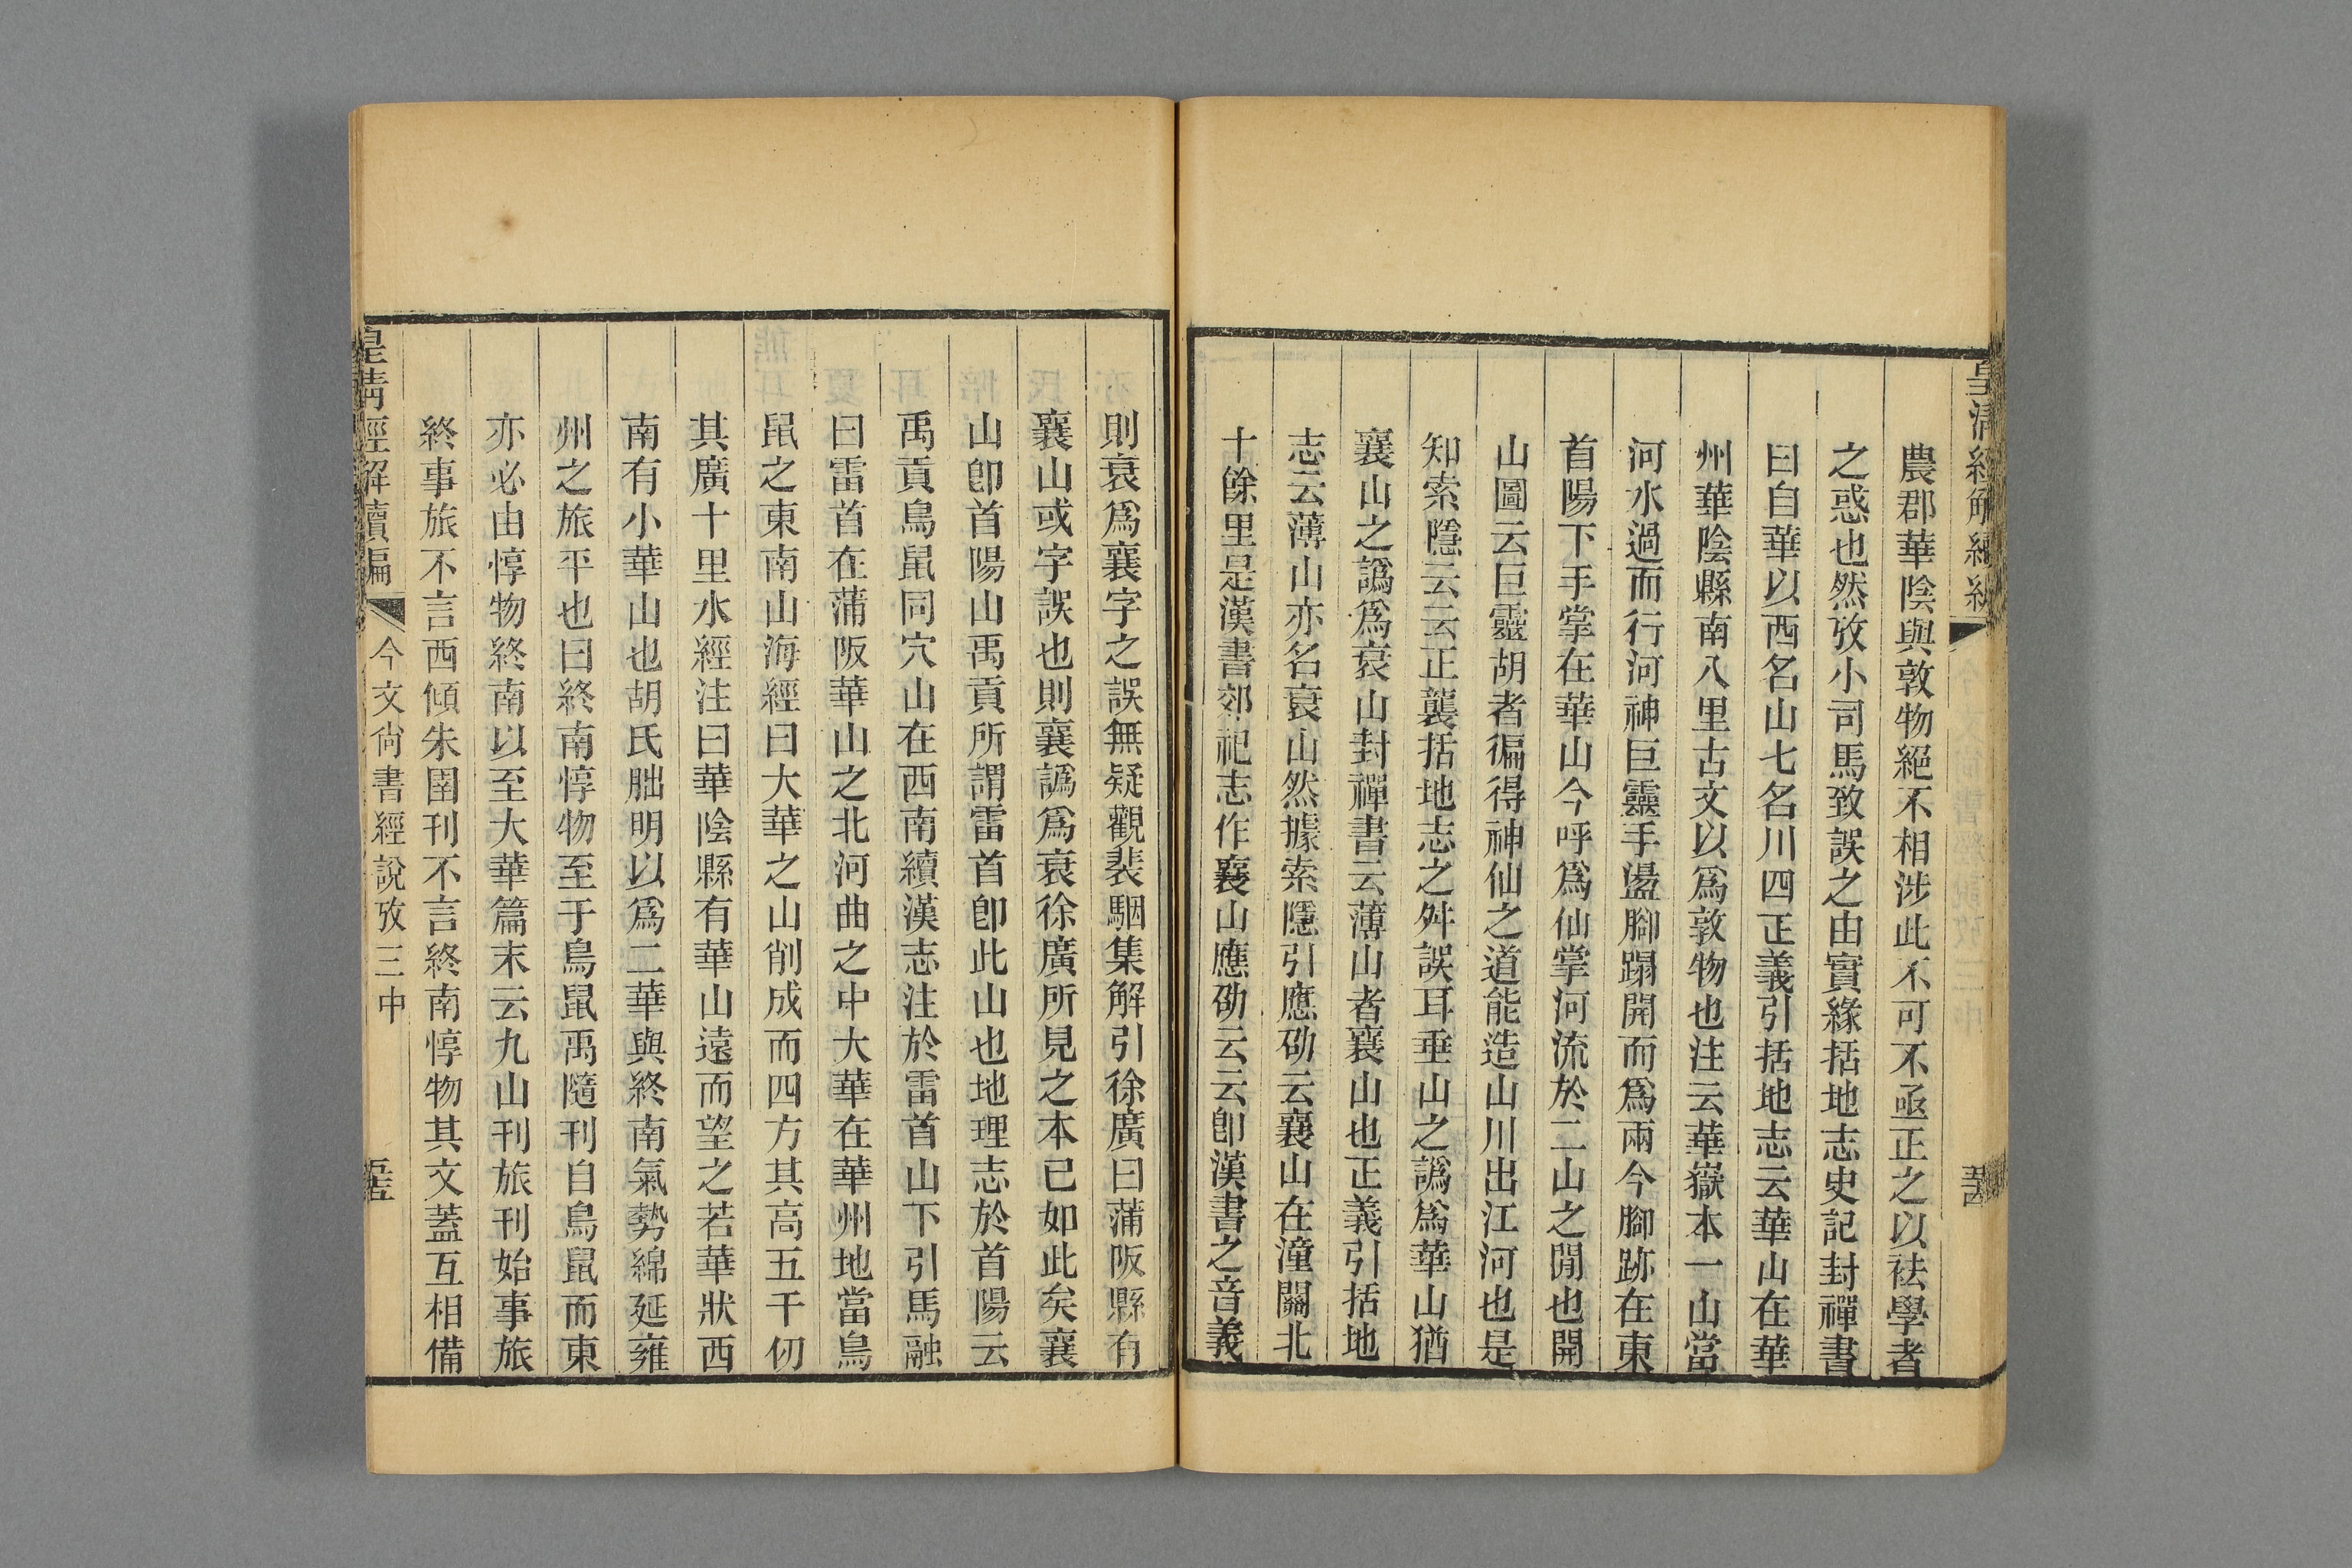 農郡華陰與敦物絕不相涉此不可不亟正之以袪學者
之惑也然攷小司馬致誤之由實緣括地志史記封禪書
曰自華以西名山七名川四正義引括地志云華山在華
州華陰縣南八里古文以爲敦物也注云華嶽本一山當
河水過而行河神巨靈手盪腳蹋開而爲兩今腳跡在東
首陽下手掌在華山今呼爲仙掌河流於二山之閒也開
山圖云巨靈胡者徧得神仙之道能造山川出江河也是
知索隱云云正襲括地志之舛誤耳垂山之譌爲華山猶
襄山之譌爲衰山封禪書云薄山者襄山也正義引括地
志云薄山亦名衰山然據索隱引應劭云襄山在潼關北
十餘里是漢書郊祀志作襄山應劭云云卽漢書之音義
則衰爲襄字之誤無疑觀裴駰集解引徐廣曰蒲阪縣有
襄山或字誤也則襄譌爲衰徐廣所見之本已如此矣襄
山卽首陽山禹貢所謂雷首卽此山也地理志於首陽云
禹貢鳥鼠同穴山在西南續漢志注於雷首山下引馬融
曰雷首在蒲阪華山之北河曲之中大華在華州地當鳥
鼠之東南山海經曰大華之山削成而四方其高五千仞
其廣十里水經注曰華陰縣有華山遠而望之若華狀西
南有小華山也胡氏朏明以爲二華與終南氣勢綿延雍
州之旅平也曰終南惇物至于鳥鼠禹隨刊自鳥鼠而東
亦必由惇物終南以至大華篇末云九山刊旅刊始事旅
終事旅不言西傾朱圉刊不言終南惇物其文蓋互相備
皇淸經解續編 今文尙書經說攷三中